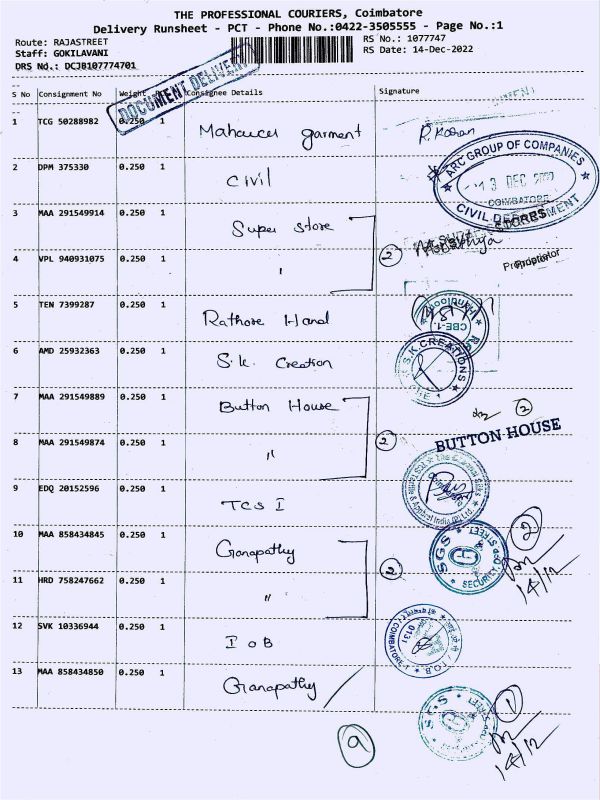 THE PROFESSIONAL COURIERS, Coimbatore
Delivery Runsheet - PCT - Phone No.:0422-3505555 - Page No.:1
Route: RAJASTREET
Staff: GOKILAVANI
DRS No.: DCJ0107774701
RS No.: 1077747
RS Date: 14-Dec-2022
DOCUMENT DELIVERY
S No Consignment No Weight Consignee Details Signature
1 TCG 50288982 0.250 1 garment
2 DPM 375330 0.250 1 Civil
ARC GROUP OF COMPANIES
13 DEC
COIMBATORE
CIVIL
3 MAA 291549914 0.250 1 Super Store
4 VPL 940931075 0.250 1 "
2
Proprietor
5 TEN 7399287 0.250 1 Rathore Hand
CBE-1
6 AMD 25932363 0.250 1 S.k. Creation
S.K CREATIONS
7 MAA 291549889 0.250 1 Button House
2
BUTTON HOUSE
8 MAA 291549874 0.250 1 "
2
9 EDQ 20152596 0.250 1 TCS I
10 MAA 858434845 0.250 1 Ganapathy
SGS
SECURITY
2
14/12
11 HRD 758247662 0.250 1 "
2
12 SVK 10336944 0.250 1 IOB
COIMBATORE
0131
IOB
13 MAA 858434850 0.250 1 Ganapathy
SGS
1
14/12
9